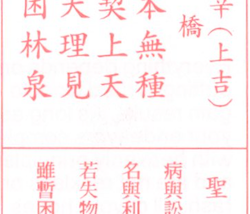 辛（上吉）
橋
本無種
契上天
天理見
困林泉
聖
病與訟
名與利
若失物
雖暫困